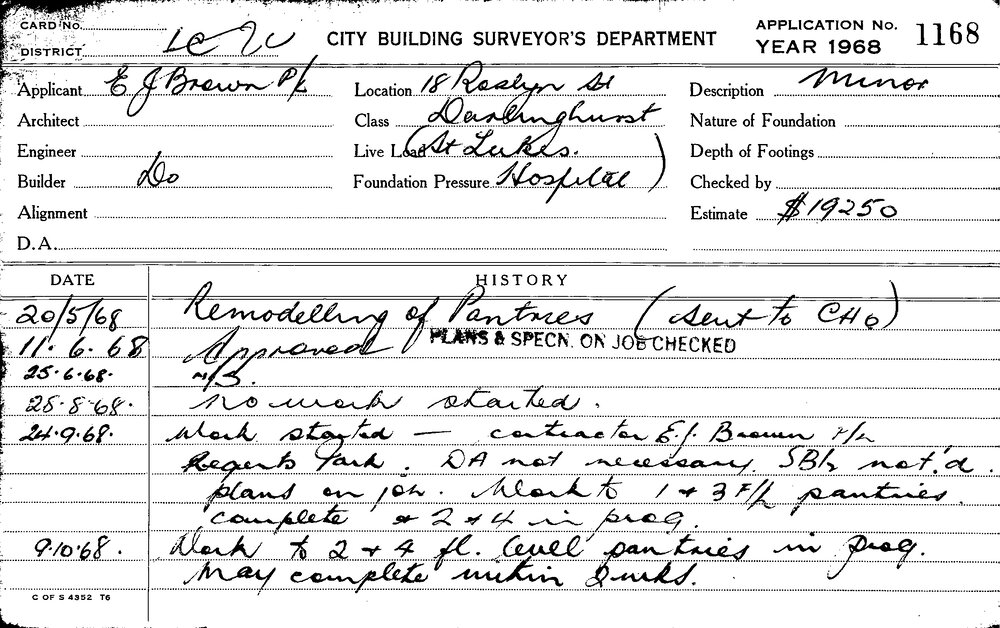 CARD No.
DISTRICT
CITY BUILDING SURVEYOR'S DEPARTMENT
APPLICATION No. 1168
YEAR 1968
Applicant E J Brown P/L Location 18 Roslyn St Description Minor
Architect Class Darlinghurst Nature of Foundation
Engineer Live Load (St Lukes. Depth of Footings
Builder Do Foundation Pressure Hospital) Checked by
Alignment Estimate $19250
D.A.
DATE HISTORY
20/5/68 Remodelling of Pantries (sent to CHO)
11.6.68 Approved PLANS & SPECN. ON JOB CHECKED
25.6.68. N/S.
28.8.68. No work started.
24.9.68. Work started — contractor E.J. Brown P/L
Regents Park. DA not necessary. not'd.
plans on job. Work to 1 & 3 F/L pantries
complete & 2 & 4 in prog.
9.10.68. Work to 2 & 4 fl. level pantries in prog.
May complete within 2 wks.
C OF S 4352 T6